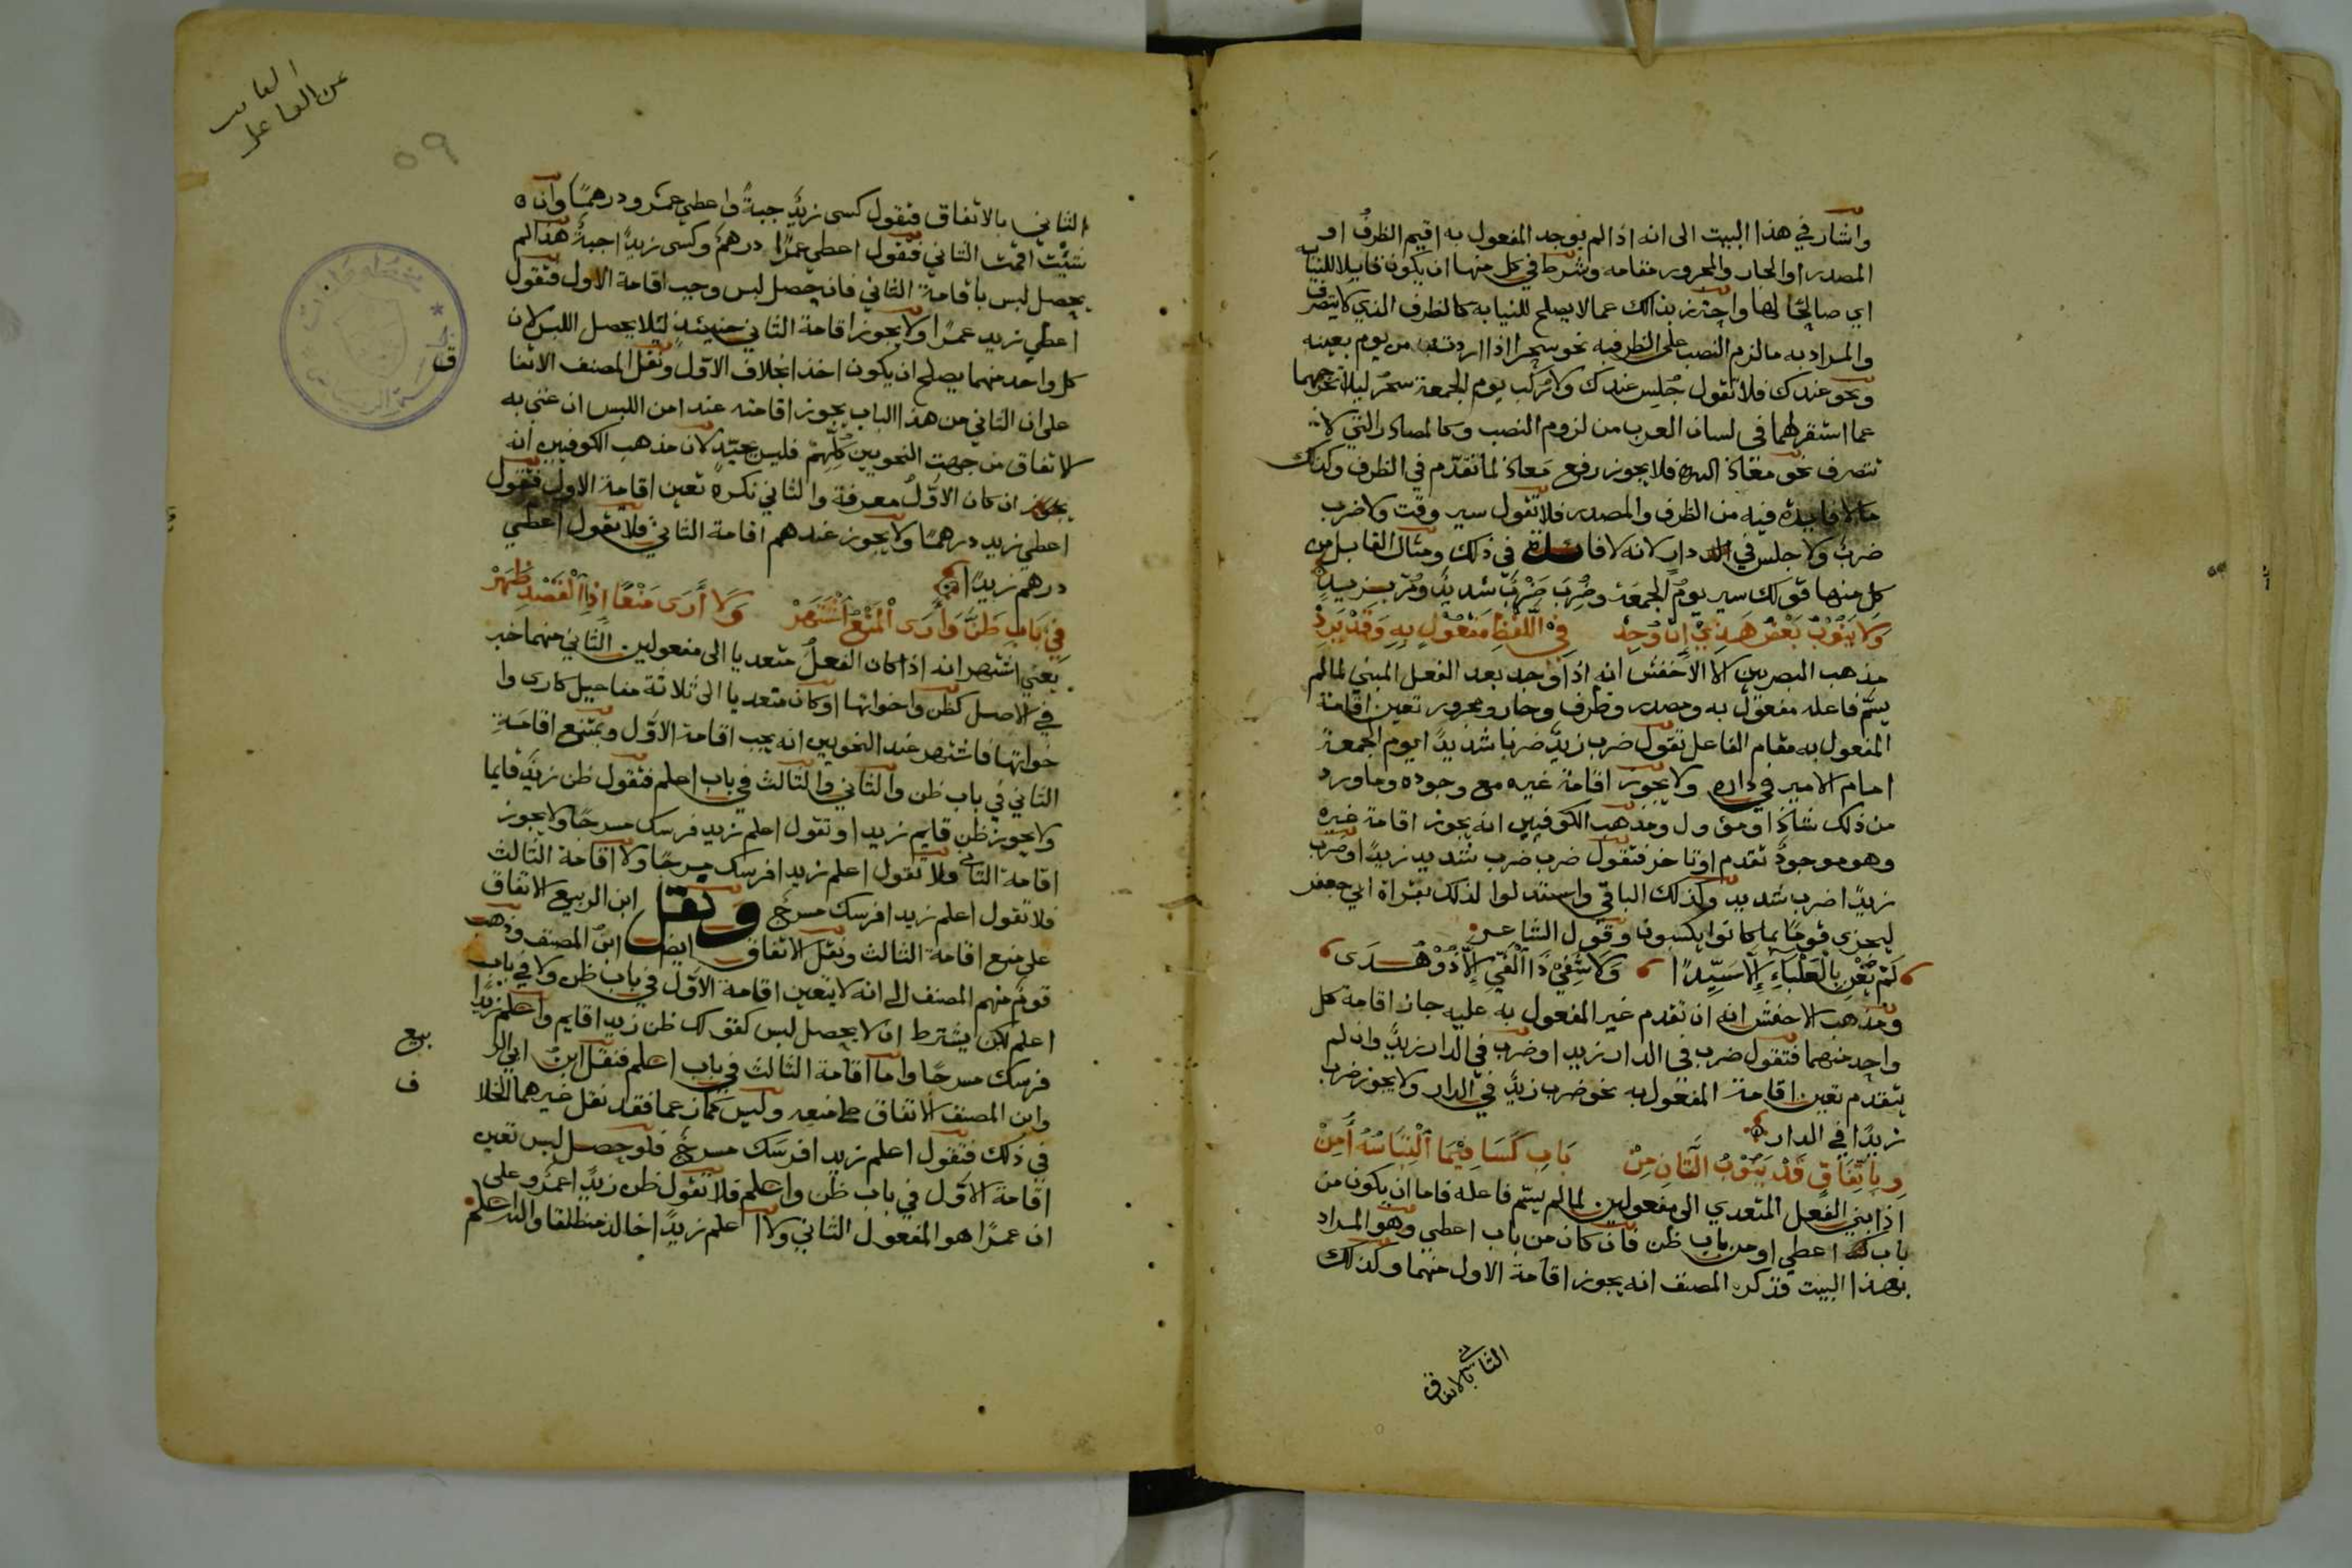 واشار في هذا البيت الى انه اذا لم يوجد المفعول به اقيم الظرف او
المصدر او الجار والمجرور مقامه وشرط في كل منها ان يكون قابلا للنيابه
اي صالحا لها واحترز بذالك عما لا يصلح للنيابه كالظرف الذي لا يتصرف
والمراد به ما لزم النصب على الظرفيه نحو سحر اذا اردت به من يوم بعينه
ونحو عندك فلا تقول جُلِس عندك ولا رُكب يوم الجمعة سحرُ ليلا تخرجهما
عما استقر لهما في لسان العرب من لزوم النصب وكالمصادر التي لا
تتصرف نحو معاذ الله فلا يجوز رفع مَعاذ لما تقدّم في الظرف وكذلك
ما لا فايدة فيه من الظرف والمصدر فلا تقول سير وقت ولا ضرب
ضربٌ ولا جلس في دار لانه لا فائدة في ذلك ومثال القابل من
كل منها قولك سير يومُ الجمعة وضُرِبَ ضَرْبٌ شديدٌ ومُرّ بزيدٍ
وَلَا يَنُوْبُ بَعْضُ هَذِيْ إِنْ وُجِدْ فِي الْلَّفْظِ مَفْعُوْلٍ بِهِ وَقَدْ يَرِدْ
مذهب البصرين الا الاخفش انه اذا وجد بعد الفعل المبني لما لم
يسمّ فاعله مفعولٌ به ومصدر وظرف وجار ومجرور تعين اقامة
المفعول به مقام الفاعل تقول ضرب زيدٌ ضربا شديدًا يوم الجمعة
امام الامير في داره ولا يجوز اقامة غيره مع وجوده وما ورد
من ذلك شاذ او مؤول ومذهب الكوفيين انه يجوز اقامة غيره
وهو موجودٌ تقدم او تاخر فتقول ضرب ضرب شديد زيدًا وضرب
زيدًا ضرب شديد وكذلك الباقي واستدلوا لذلك بقراة ابي جعفر
ليجزى قومًا بما كانوا يكسبون وقول الشاعر
لَمْ يُعْنَ بِالْعَلْيَاءِ إِلَّا سَيِّدًا وَلَا شَفَى ذَا الْغَيِّ إِلَّا ذُوْ هُدَى
ومذهب الاخفش انه ان تقدم غير المفعول به عليه جاز اقامة كل
واحد منهما فتقول ضرب في الدار زيدا وضرب في الدار زيدٌ وان لم
يتقدم تعين اقامة المفعول به نحو ضرب زيدٌ في الدار ولا يجوز ضرب
زيدًا في الدار
وَبِاتِّفَاقٍ قَدْ يَنُوْبُ الثَّانِ مِنْ بَابِ كَسَا فِيْمَا الْتِبَاسُهُ أُمِنْ
اذا بني الفعل المتعدي الى مفعولين لما لم يسمّ فاعله فاما ان يكون من
باب اعطي او من باب ظن فان كان من باب اعطي وهو المراد
بهذا البيت فذكر المصنف انه يجوز اقامة الاول منهما وكذلك
الثاني بالاتفاق
النايب
عن الفاعل
٥٩
الثاني بالاتفاق فتقول كسى زيدٌ جبةً واعطي عمرو درهمًا وان
شئت اقمت الثاني فتقول اعطي عمرًا درهمٌ وكسى زيدًا جبةٌ هذا لم
يحصل لبس باقامة الثاني فان حصل لبس وجب اقامة الاول فتقول
اعطي زيد عمرًا ولا يجوز اقامة الثاني حينئذٍ ليلا يحصل اللبس لان
كل واحد منهما يصلح ان يكون اخذا بخلاف الاوّل ونقل المصنف الاتفا
ق
على ان الثاني من هذا الباب يجوز اقامته عند امن اللبس ان عني به
لاتفاق من جهت النحويين كلِّهِمْ فليس بجيّدٍ لان مذهب الكوفيين انه
يجوز ان كان الاوّلُ معرفة والثاني نكره تعين اقامة الاول فتقول
اعطي زيد درهمًا ولا يجوز عندهم اقامة الثاني فلا تقول اعطي
درهم زيدًا
فِي بَابِ ظَنَّ وَأَرَى الْمَنْعُ اشْتَهَرْ وَلَا أَرَى مَنْعًا إِذَا الْقَصْدُ ظَهَرْ
يعني اشتهر انه اذا كان الفعلُ متعديا الى مفعولين الثاني منهما خبر
في الاصل كظن واخواتها او كان متعديا الى ثلاثة مفاعيل كارى وا
خواتها فاشتهر عند النحويين انه يجب اقامة الاوّل ويمتنع اقامَةِ
الثاني في باب ظن والثاني والثالث في باب اعلم فتقول ظن زيدٌ قايما
ولا يجوز ظن قايم زيدا وتقول اعلم زيد فرسك مسرجًا ولا يجوز
اقامة الثاني فلا تقول اعلم زيدا فرسك مسرجًا ولا اقامة الثالث
فلا تقول اعلم زيدا فرسك مسرجٌ ونقل ابن الربيع الاتفاق
على منع اقامة الثالث ونقل الاتفاق ايضا ابن المصنف وذهب
قومٌ منهم المصنف الى انه لا يتعين اقامة الاوّل في باب ظن ولا في باب
اعلم لكن يشترط ان لا يحصل لبس كقولك ظن زيدا قايم واعلم زيدًا
فرسك مسرجًا واما اقامة الثالث في باب اعلم فنقل ابنُ ابي الر
بيع
وابن المصنف الاتفاق على منعه وليس كما زعما فقد نقل غيرهما الخلا
ف
في ذلك فتقول اعلم زيدا فرسَك مسرجٌ فلو حصل لبس تعين
اقامة الاوّل في باب ظن واعلم فلا تقول ظن زيدًا عمرٌو على
ان عمرًا هو المفعول الثاني ولا اعلم زيدًا خالد منطلقا والله اعلم